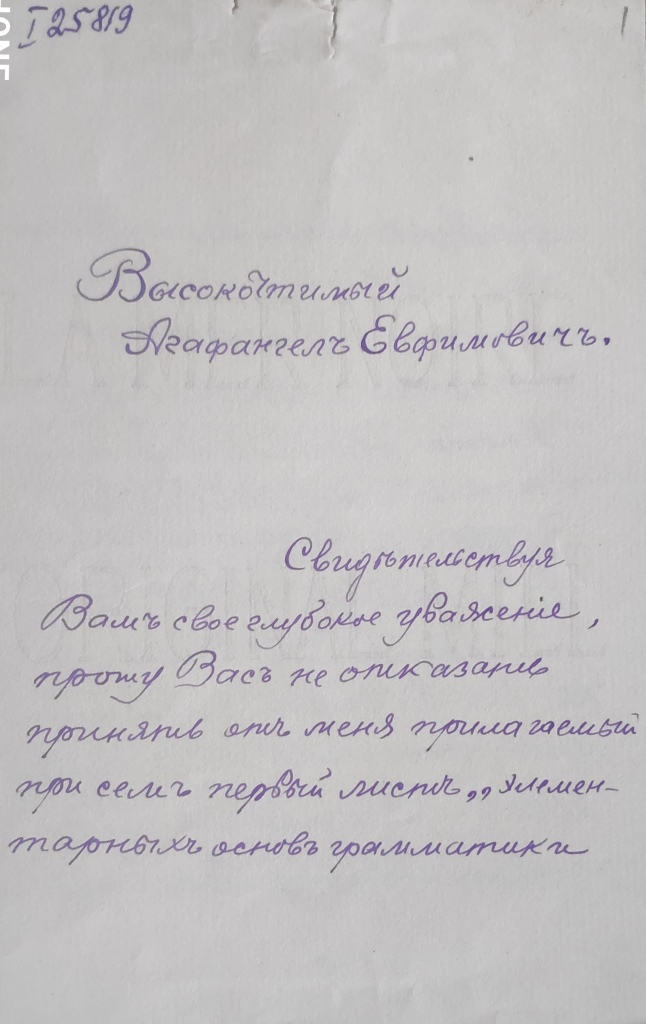 I 25819
Высокочтимый
Агафангелъ Евфимовичъ.
Свидѣтельствуя
Вамъ свое глубокое уваженіе,
прошу Васъ не отказать
принять отъ меня прилагаемый
при семъ первый листъ „Элемен-
тарныхъ основъ грамматики